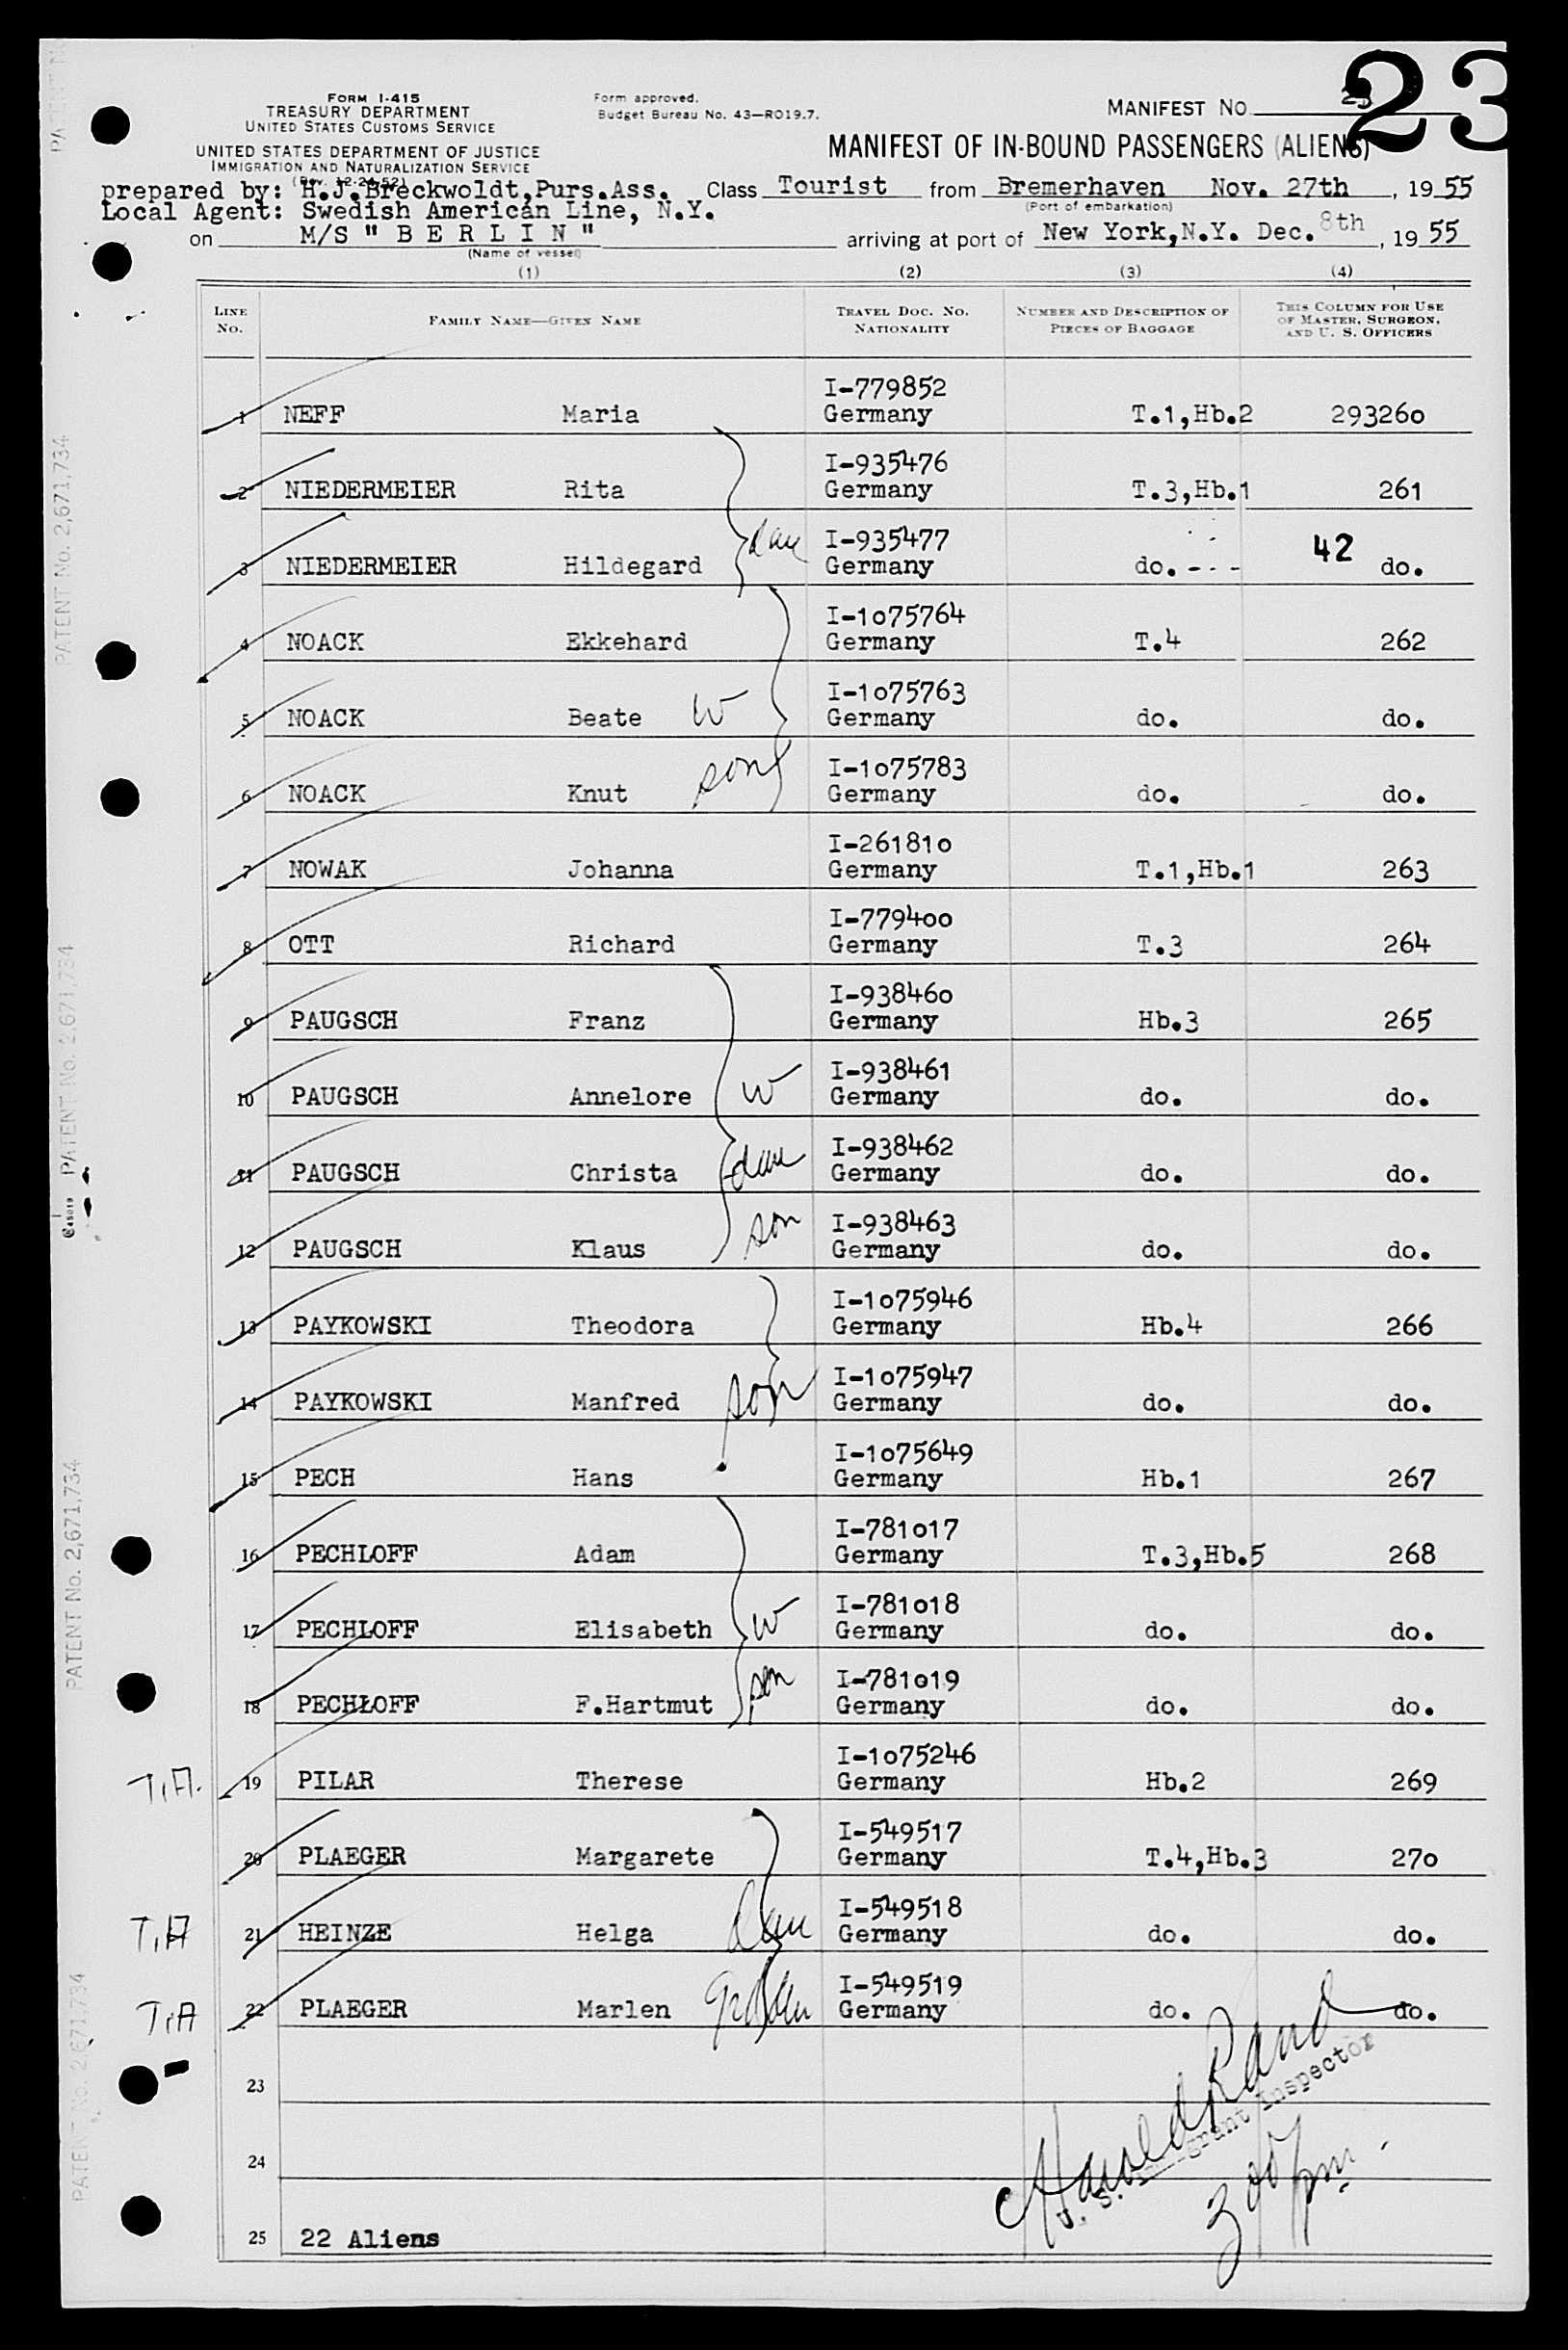 23
FORM I-415
TREASURY DEPARTMENT
UNITED STATES CUSTOMS SERVICE
UNITED STATES DEPARTMENT OF JUSTICE
IMMIGRATION AND NATURALIZATION SERVICE
(Rev. 12-24-52)
Form approved.
Budget Bureau No. 43—RO19.7.
MANIFEST NO. 23
MANIFEST OF IN-BOUND PASSENGERS (ALIENS)
prepared by: H.J.Breckwoldt,Purs.Ass. Class Tourist from Bremerhaven Nov. 27th, 1955
(Port of embarkation)
Local Agent: Swedish American Line, N.Y.
on M/S " B E R L I N " arriving at port of New York,N.Y. Dec. 8th, 1955
(Name of vessel)
(1) (2) (3) (4)
LINE NO. FAMILY NAME—GIVEN NAME TRAVEL DOC. NO. NATIONALITY NUMBER AND DESCRIPTION OF PIECES OF BAGGAGE THIS COLUMN FOR USE OF MASTER, SURGEON, AND U. S. OFFICERS
I-779852
1 NEFF Maria Germany T.1,Hb.2 293260
I-935476
2 NIEDERMEIER Rita Germany T.3,Hb.1 261
dau I-935477 42
3 NIEDERMEIER Hildegard Germany do. - - - do.
I-1075764
4 NOACK Ekkehard Germany T.4 262
I-1075763
5 NOACK Beate W Germany do. do.
I-1075783
6 NOACK Knut son Germany do. do.
I-261810
7 NOWAK Johanna Germany T.1,Hb.1 263
I-779400
8 OTT Richard Germany T.3 264
I-938460
9 PAUGSCH Franz Germany Hb.3 265
I-938461
10 PAUGSCH Annelore W Germany do. do.
I-938462
11 PAUGSCH Christa dau Germany do. do.
I-938463
12 PAUGSCH Klaus son Germany do. do.
I-1075946
13 PAYKOWSKI Theodora Germany Hb.4 266
I-1075947
14 PAYKOWSKI Manfred son Germany do. do.
I-1075649
15 PECH Hans Germany Hb.1 267
I-781017
16 PECHLOFF Adam Germany T.3,Hb.5 268
I-781018
17 PECHLOFF Elisabeth W Germany do. do.
I-781019
18 PECHLOFF F.Hartmut son Germany do. do.
I-1075246
T.A. 19 PILAR Therese Germany Hb.2 269
I-549517
20 PLAEGER Margarete Germany T.4,Hb.3 270
I-549518
T.A 21 HEINZE Helga dau Germany do. do.
I-549519
T.A 22 PLAEGER Marlen grdau Germany do. do.
23
24
Harold Rand
U. S. Immigrant Inspector
300 pm
25 22 Aliens
PATENT No. 2,671,734
PATENT No. 2,671,734
PATENT No. 2,671,734
PATENT No. 2,671,734